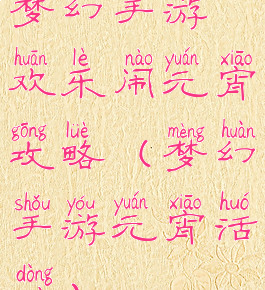 梦幻手游
huān lè nào yuán xiāo
欢乐闹元宵
gōng lüè mèng huàn
攻略（梦幻
shǒu yóu yuán xiāo huó
手游元宵活
dòng